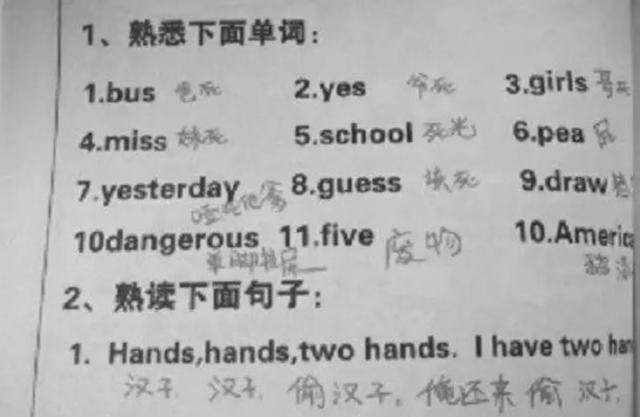 1、熟悉下面单词：
1.bus 爸死 2.yes 爷死 3.girls 哥死
4.miss 妹死 5.school 死光 6.pea 屁
7.yesterday 8.guess 9.draw
10dangerous 11.five 废物 10.America
2、熟读下面句子：
1. Hands,hands,two hands. I have two han
汉子，汉子，偷汉子。俺还来偷汉子，